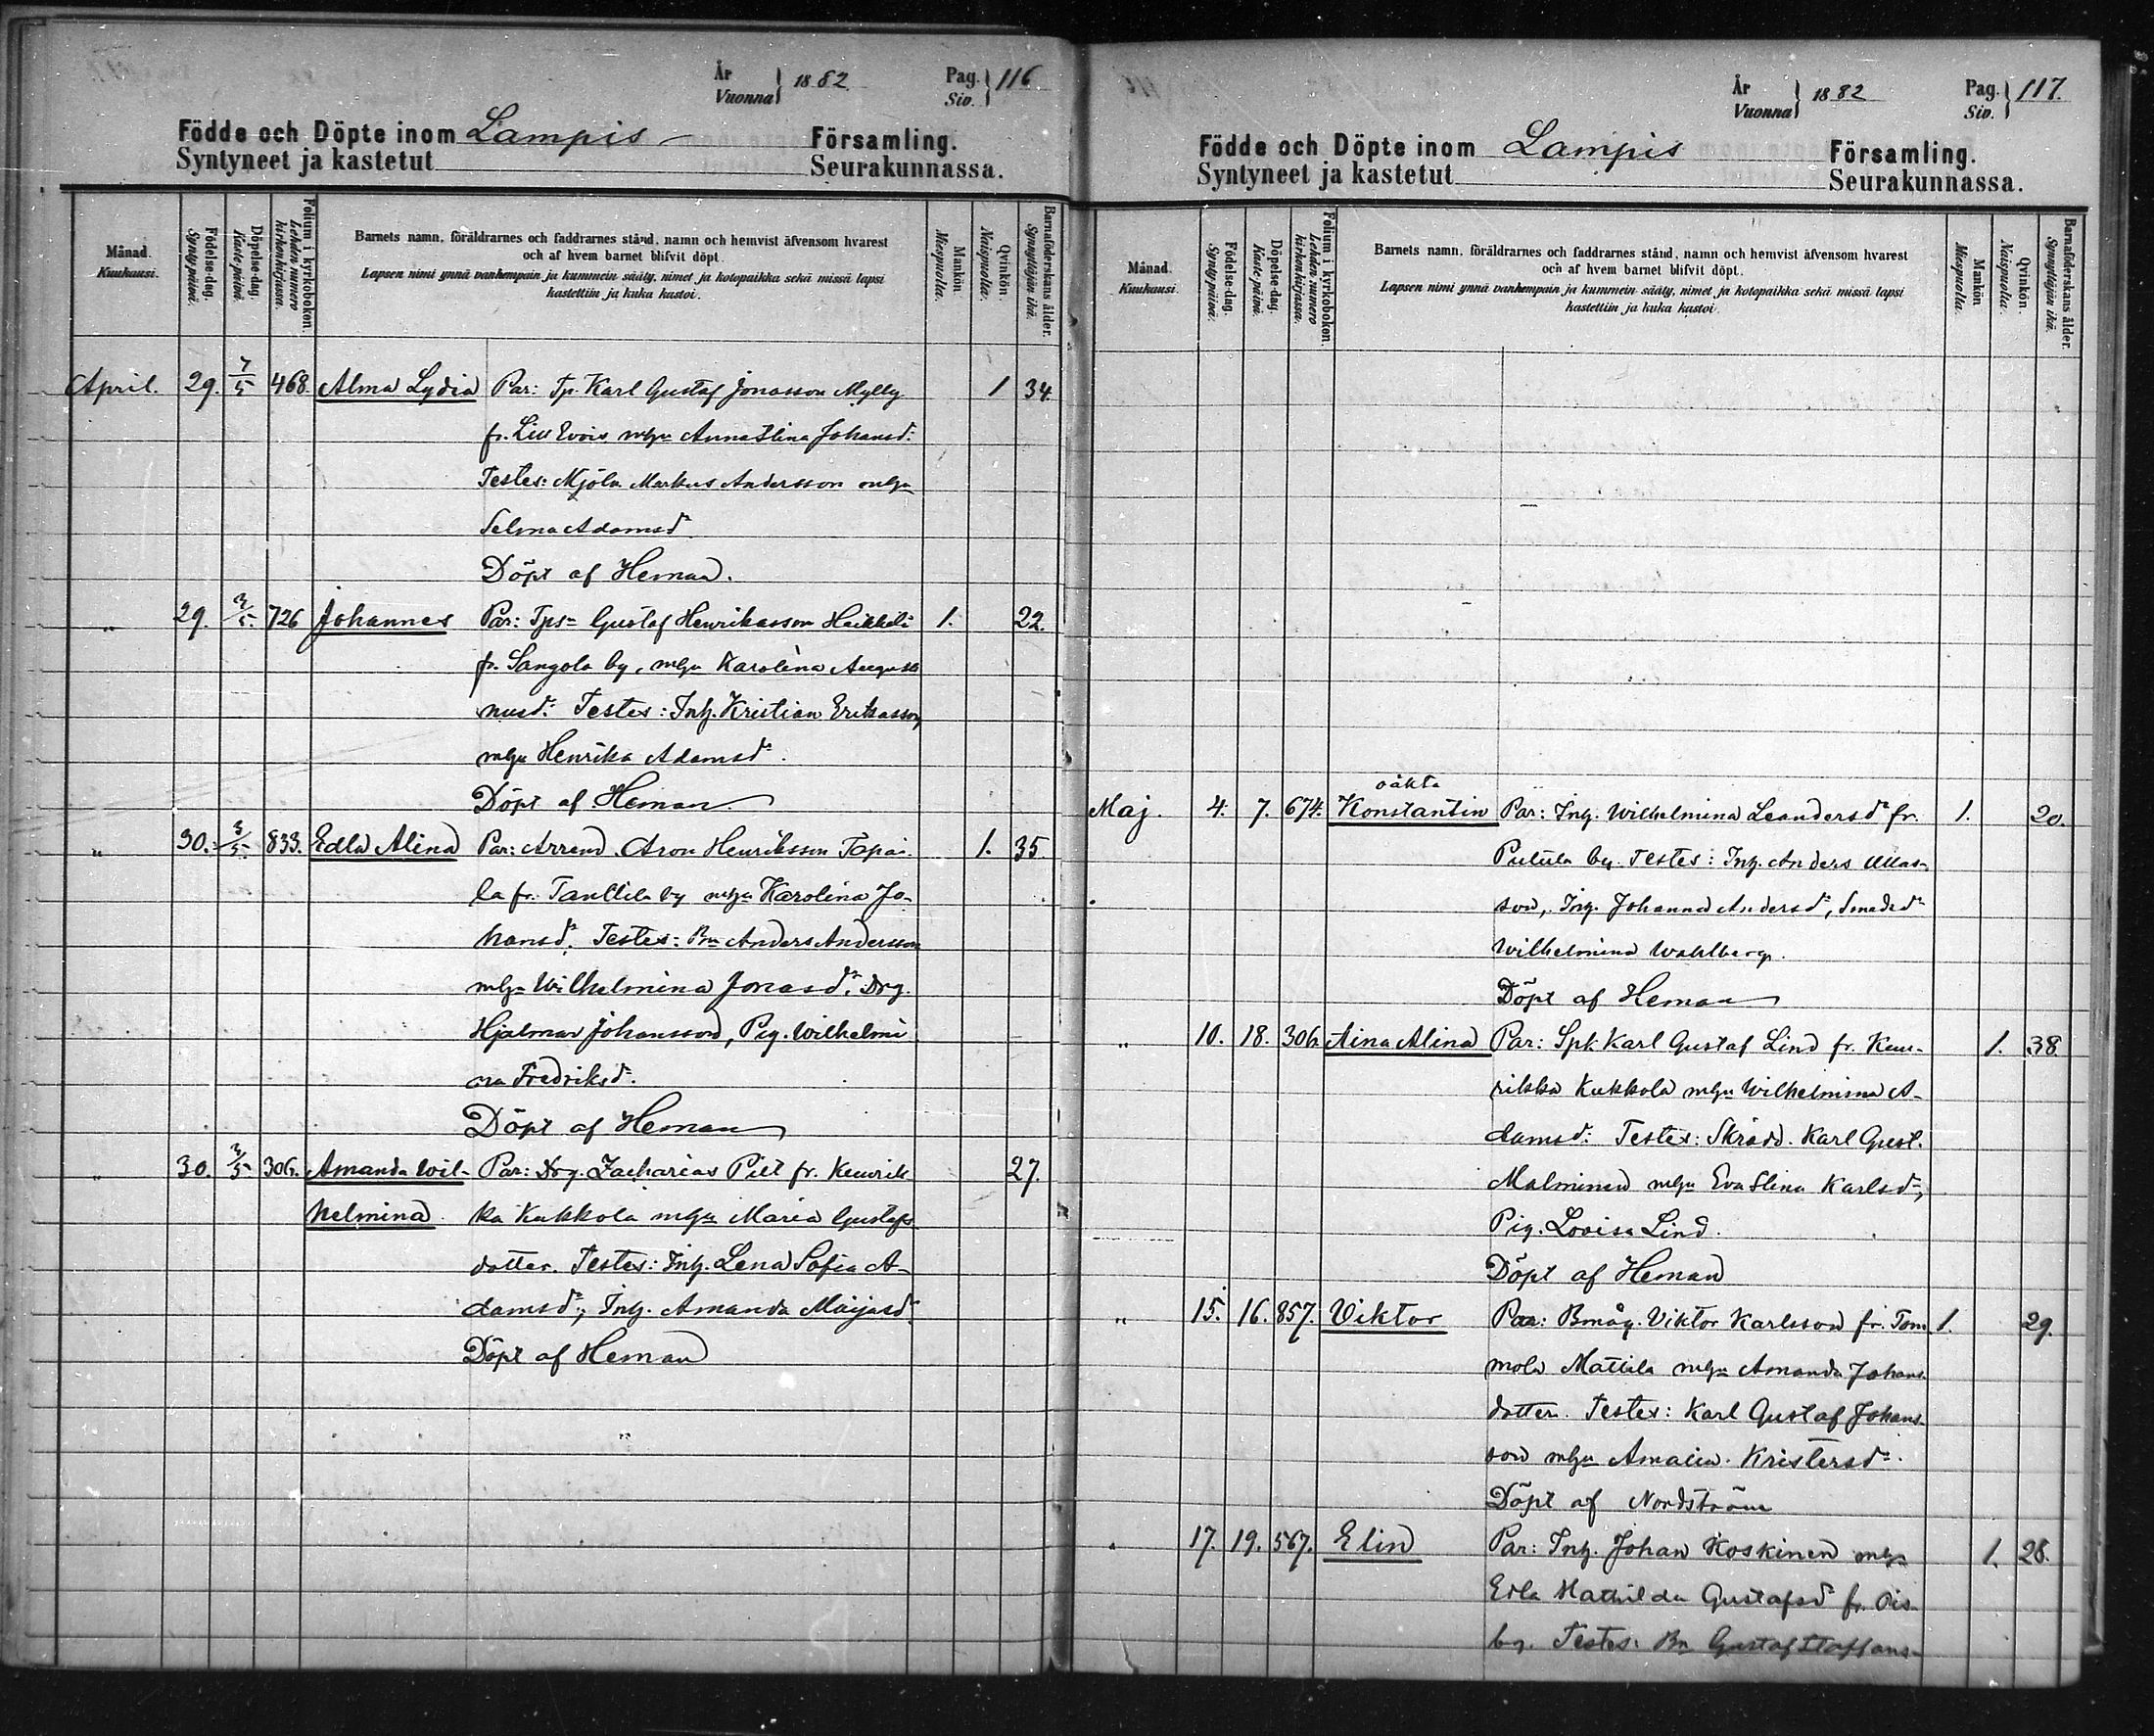 År
Vuonna
1882
Pag.
Siv.
116
Födde och Döpte inom Lampis Församling.
Syntyneet ja kastetut Seurakunnassa.
Månad.
Kuukausi.
Födelse-dag.
Syntypäivä.
Döpelse-dag.
Kaste-päivä.
Folium i kyrkoboken.
Lehden numero
kirkonkirjassa.
Barnets namn, föräldrarnes och faddrarnes stånd, namn och hemvist äfvensom hvarest
och af hvem barnet blifvit döpt.
Lapsen nimi ynnä vanhempain ja kummein sääty, nimet ja kotopaikka sekä missä lapsi
kastettiin ja kuka kastoi.
Mankön.
Miespuolta.
Qvinkön.
Naispuolta.
Barnaföderskans ålder.
Synnyttäjän ikä.
April. 29. 7/5 468. Alma Lydia Par: Tp. Karl Gustaf Jonasson Mylly 1 34.
fr. Evois mhu Anna Stina Johansd:
Testes: Mjöln. Markus Andersson mhu
Selma Adamsd:
Döpt af Heman.
" 29. 3/5. 726 Johannes Par: Tps= Gustaf Henriksson Heikkilä 1. 22.
fr. Sangola by, mhu Karolina Augusti
nusd: Testes: Inh. Kristian Eriksson
mhu Henrika Adamsd:
Döpt af Heman
" 30. 3/5. 833. Edla Alina Par: Arrend. Aron Henriksson Tapai- 1. 35.
la fr. Tanttila by mhu Karolina Jo-
hansd: Testes: Bn Anders Andersson
mhu Wilhelmina Jonasd:, Drg.
Hjalmar Johansson, Pig. Wilhelmi
na Fredriksd:
Döpt af Heman
" 30. 3/5. 306. Amanda Wil- Par: Drg. Zacharias Piet fr. Keurik- 27.
helmina ka Kukkola mhu Maria Gustafs
dotter. Testes: Inh. Lena Sofia A-
damsd:, Inh. Amanda Maijasd:
Döpt af Heman
År
Vuonna
1882
Pag.
Siv.
117.
Födde och Döpte inom Lampis Församling.
Syntyneet ja kastetut Seurakunnassa.
Månad.
Kuukausi.
Födelse-dag.
Syntypäivä.
Döpelse-dag.
Kaste-päivä.
Folium i kyrkoboken.
Lehden numero
kirkonkirjassa.
Barnets namn, föräldrarnes och faddrarnes stånd, namn och hemvist äfvensom hvarest
och af hvem barnet blifvit döpt.
Lapsen nimi ynnä vanhempain ja kummein sääty, nimet ja kotopaikka sekä missä lapsi
kastettiin ja kuka kastoi.
Mankön
Miespuolta.
Qvinkön.
Naispuolta.
Barnaföderskans ålder.
Synnyttäjän ikä.
oäkta
Maj. 4. 7. 674. Konstantin Par: Inh. Wilhelmina Leandersd: fr. 1. 20.
Putula by. Testes: Inh. Anders Mas-
son, Inh. Johanna Andersd:, Smedsd:
Wilhelmina Wahlberg.
Döpt af Heman
" 10. 18. 306. Aina Alina Par: Spk. Karl Gustaf Lind fr. Keu- 1. 38.
rikka Kukkola mhu Wilhelmina A-
damsd: Testes: Skrädd. Karl Gust.
Malminen mhu Eva Stina Karlsd:,
Pig. Lovisa Lind.
Döpt af Heman
" 15. 16. 857. Viktor Par: Bmåg. Viktor Karlsson fr. Tom 1. 29.
mola Mattila mhu Amanda Johans-
dotter. Testes: Karl Gustaf Johans-
son mhu Amalia Kristersd:
Döpt af Nordström
" 17. 19. 567. Elin Par: Inh. Johan Koskinen mhu 1. 28.
Edla Mathilda Gustafsd fr.
by. Testes: Bn Gustaf Staffans-